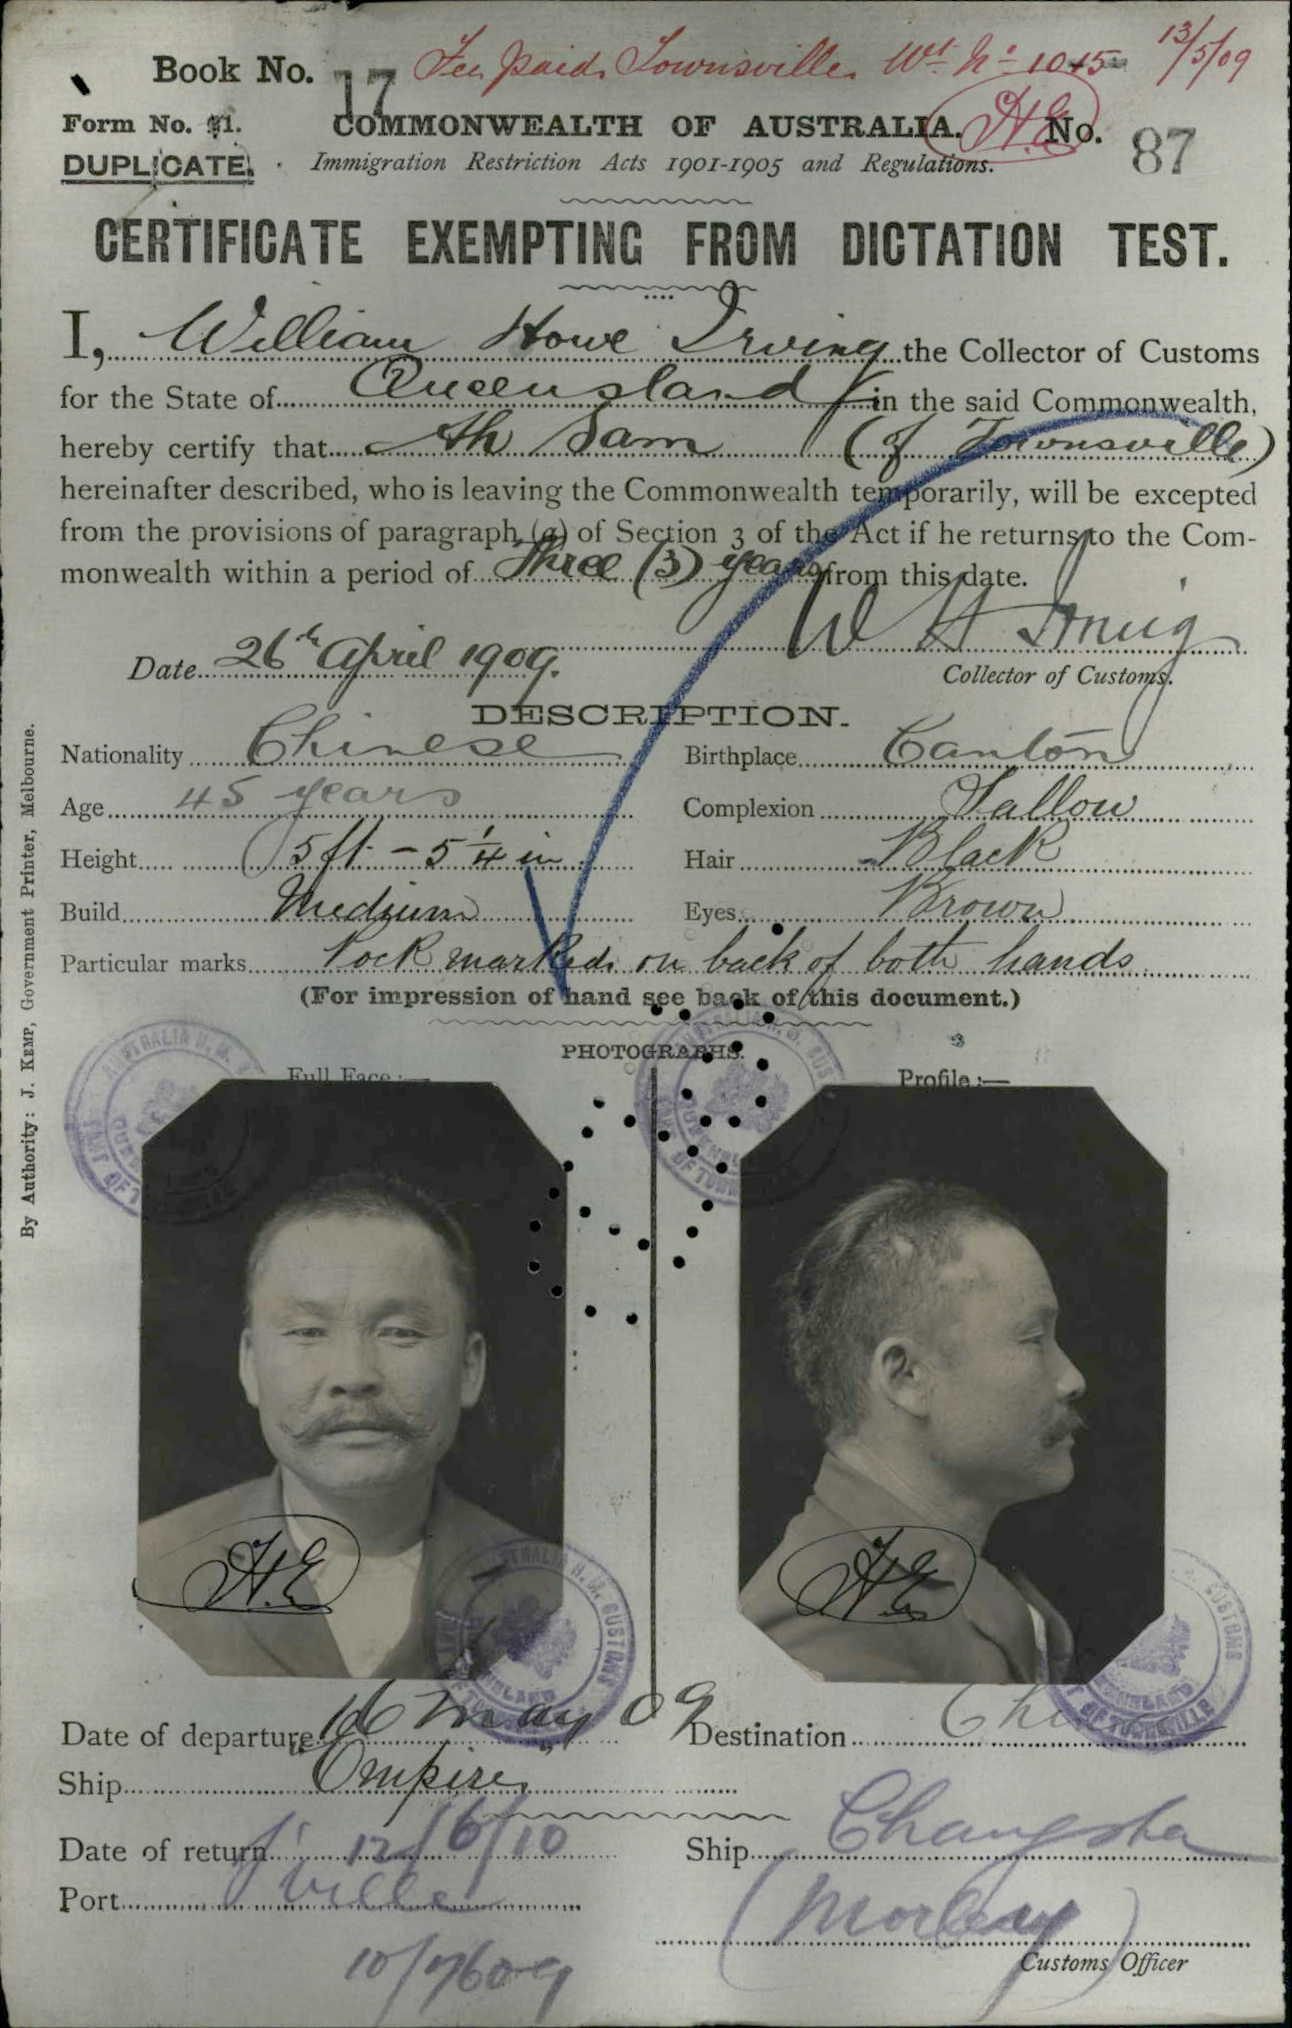 Book No. 17 Fee paid. Townsville. 13/5/09
Form No. 21. COMMONWEALTH OF AUSTRALIA. H.E No. 87
DUPLICATE. Immigration Restriction Acts 1901-1905 and Regulations.
CERTIFICATE EXEMPTING FROM DICTATION TEST.
I, William Howe Irving the Collector of Customs
for the State of Queensland in the said Commonwealth,
hereby certify that Ah Sam (of Townsville)
hereinafter described, who is leaving the Commonwealth temporarily, will be excepted
from the provisions of paragraph (a) of Section 3 of the Act if he returns to the Com-
monwealth within a period of Three (3) years from this date.
W H Irving
Date 26th April 1909. Collector of Customs.
DESCRIPTION.
Nationality Chinese Birthplace Canton
Age 45 years Complexion Sallow
Height 5ft - 5 1/4 in Hair Black
Build Medium Eyes Brown
Particular marks Pock marked on back of both hands
(For impression of hand see back of this document.)
PHOTOGRAPHS.
Full Face:— Profile:—
H.E H.E
Date of departure 16 May 09 Destination China
Ship "Empire"
Date of return 12/6/10 Ship Changsha
Port T'ville (Morley)
Customs Officer
10/7609
By Authority: J. KEMP, Government Printer, Melbourne.